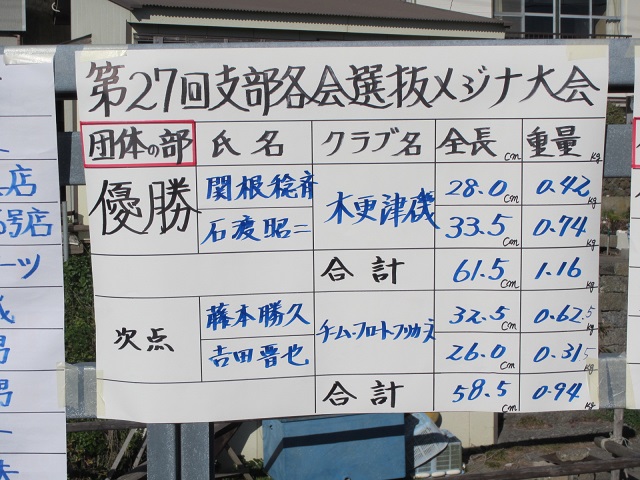 第27回支部各会選抜メジナ大会
団体の部 氏名 クラブ名 全長cm 重量kg
優勝 関根稔斉 木更津磯 28.0cm 0.42kg
石渡昭二 33.5cm 0.74kg
合計 61.5cm 1.16kg
次点 藤本勝久 チーム・フロートフッカーズ 32.5cm 0.625kg
吉田晋也 26.0cm 0.315kg
合計 58.5cm 0.94kg
店
号店
ーツ